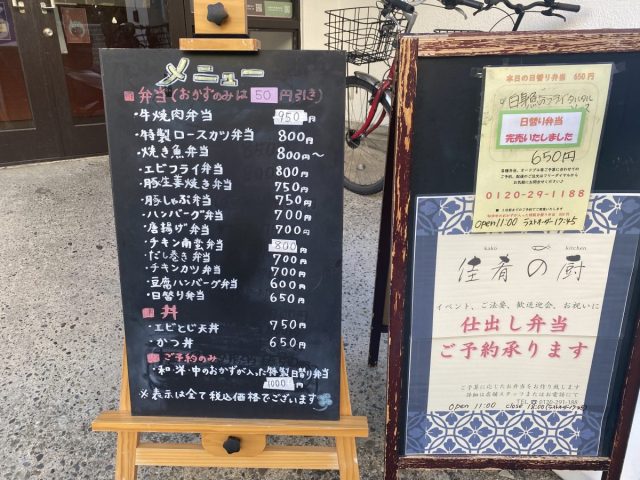 メニュー
弁当(おかずのみは50円引き)
・牛焼肉弁当 950円
・特製ロースカツ弁当 800円
・焼き魚弁当 800円～
・エビフライ弁当 800円
・豚生姜焼き弁当 750円
・豚しゃぶ弁当 750円
・ハンバーグ弁当 700円
・唐揚げ弁当 700円
・チキン南蛮弁当 800円
・だし巻き弁当 700円
・チキンカツ弁当 700円
・豆腐ハンバーグ弁当 600円
・日替り弁当 650円
丼
・エビとじ天丼 750円
・かつ丼 650円
ご予約のみ
・和・洋・中のおかずが入った特製日替り弁当
1000円
※表示は全て税込価格でございます
本日の日替り弁当 650円
白身魚フライタルタル
日替り弁当
完売いたしました
650円
0120-29-1188
open 11:00 ラストオーダー17:45
kakō kitchen
佳肴の厨
イベント、ご法要、歓送迎会、お祝いに
仕出し弁当
ご予約承ります
ご予算に応じたお弁当をお作り致します
詳細は店舗スタッフまたはお電話にて
open 11:00 close 18:00